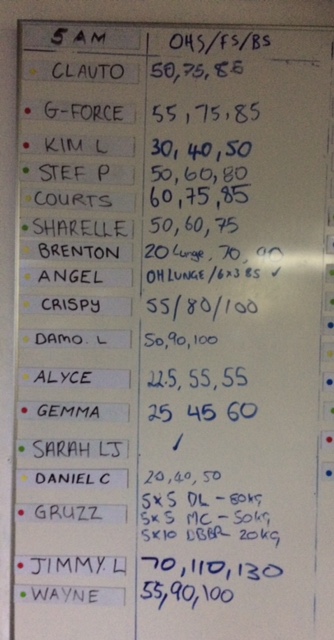 5 AM OHS/FS/BS
CLAUTO 50,75,85
G-FORCE 55,75,85
KIM L 30,40,50
STEF P 50,60,80
COURTS 60,75,85
SHARELLE 50,60,75
BRENTON 20 Lunge, 70, 90
ANGEL OH LUNGE/6x3 BS ✓
CRISPY 55/80/100
DAMO. L 50,90,100
ALYCE 22.5, 55, 55
GEMMA 25 45 60
SARAH LJ ✓
DANIEL C 20,40,50
GRUZZ 5x5 DL - 80kg
5x5 MC - 50kg
5x10 DBBR 20kg
JIMMY. L 70,110,130
WAYNE 55,90,100